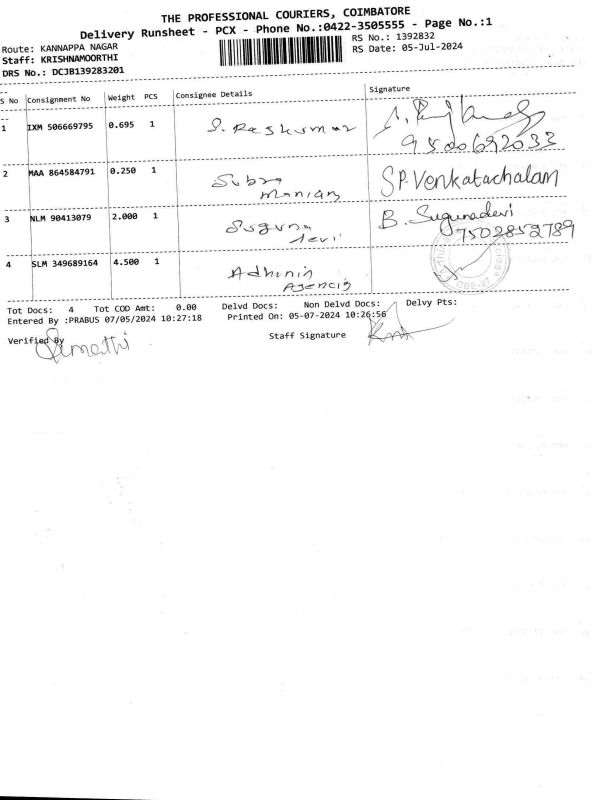 THE PROFESSIONAL COURIERS, COIMBATORE
Delivery Runsheet - PCX - Phone No.:0422-3505555 - Page No.:1
Route: KANNAPPA NAGAR RS No.: 1392832
Staff: KRISHNAMOORTHI RS Date: 05-Jul-2024
DRS No.: DCJB139283201
S No Consignment No Weight PCS Consignee Details Signature
1 IXM 506669795 0.695 1 S. Rajkumar
9500692033
2 MAA 864584791 0.250 1 Subra SP.Venkatachalam
manian
3 NLM 90413079 2.000 1 Suguna B. Sugunadevi
devi 7502852789
4 SLM 349689164 4.500 1 Adhinis
Agencis
Tot Docs: 4 Tot COD Amt: 0.00 Delvd Docs: Non Delvd Docs: Delvy Pts:
Entered By :PRABUS 07/05/2024 10:27:18 Printed On: 05-07-2024 10:26:56
Verified By Staff Signature